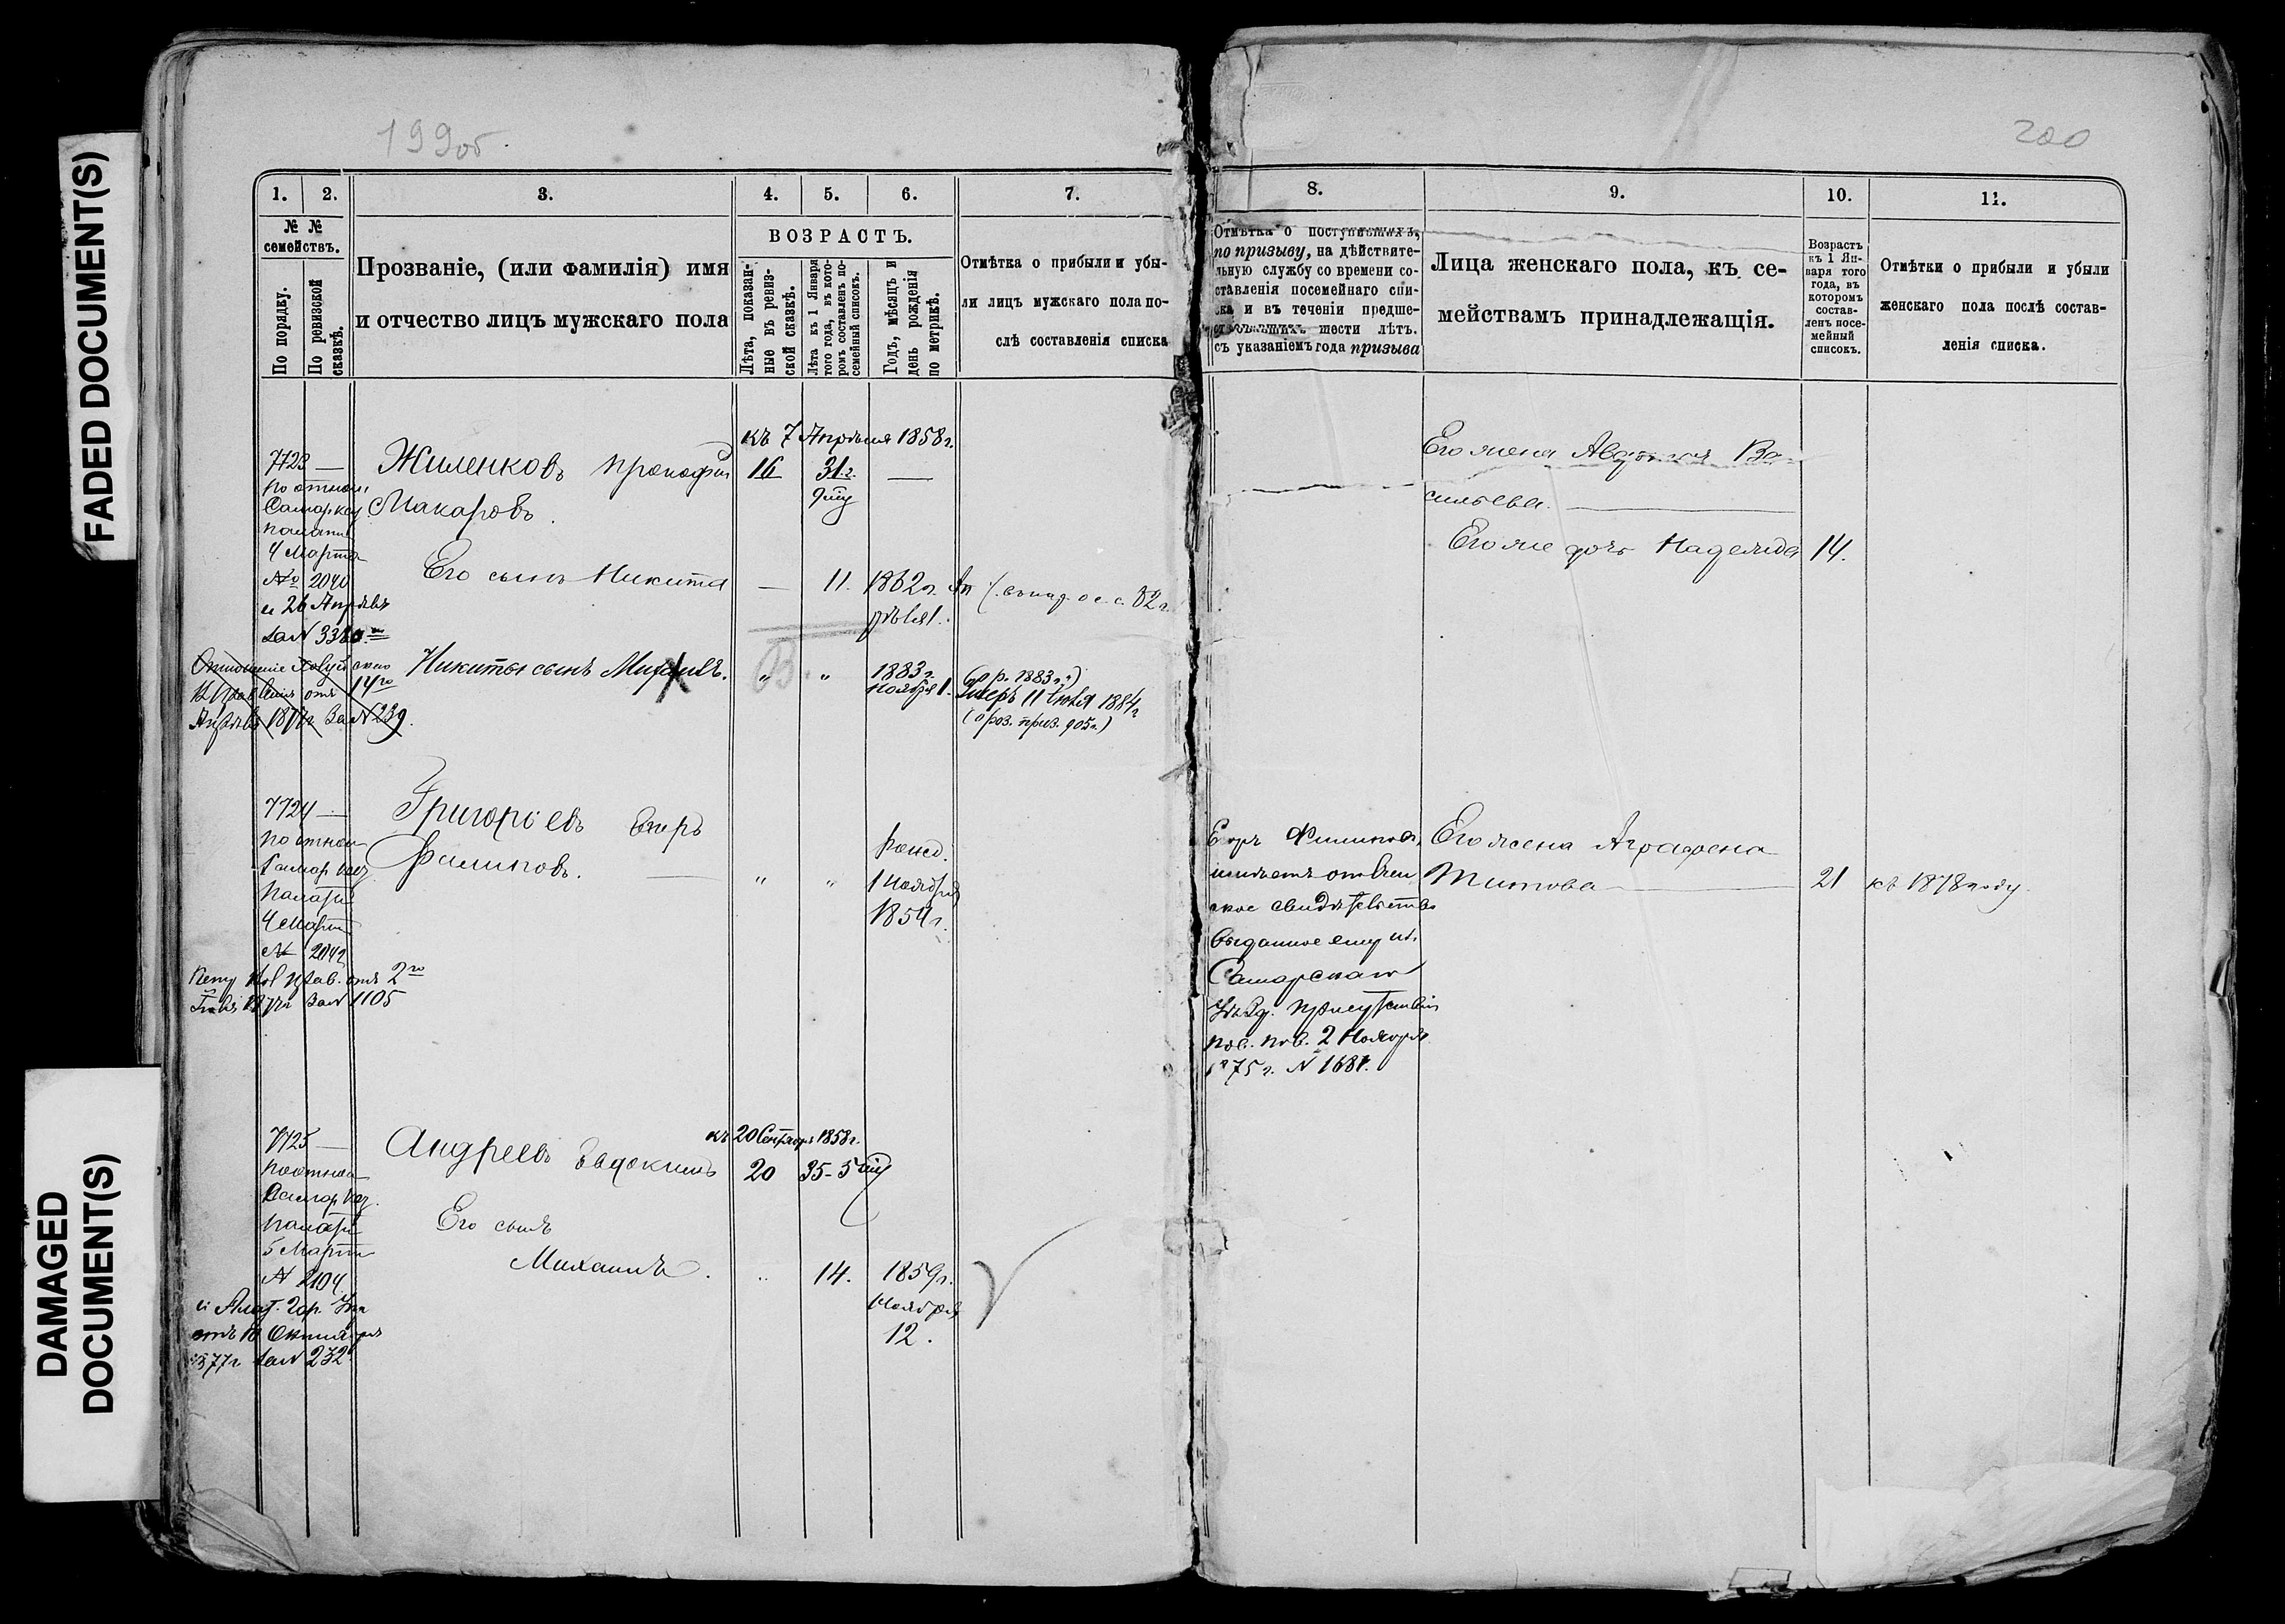 FADED DOCUMENT(S)
DAMAGED
DOCUMENT(S)
199об.
1. 2. 3. 4. 5. 6. 7.
№ №
семействъ.
По порядку.
По ревизской
сказкѣ.
Прозваніе, (или фамилія) имя
и отчество лицъ мужскаго пола
ВОЗРАСТЪ.
Лѣта, показан-
ные въ ревиз-
ской сказкѣ.
Лѣта къ 1 Января
того года, въ кото-
ромъ составленъ по-
семейный списокъ.
Годъ, мѣсяцъ и
день рожденія
по метрикѣ.
Отмѣтка о прибыли и убы-
ли лицъ мужскаго пола по-
слѣ составленія списка
къ 7 Апрѣля 1858 г.
7723 — Жиленковъ Прокофій 16 31 г. —
по отнош.
Макаровъ.
палаты
4 Марта
№ 2040
и 26 Апрѣля
за № 3380
Его сынъ Никита — 11. 1862 г. Ап
рѣля 1.
Никиты сынъ Михаилъ. " В. " 1883 г. (о р. 1883 г.)
ноября 1. Умеръ 11 Іюля 1884 г
(о роз. приз. 905 г.)
Апрѣля 1877 г за № 239.
7724 — Григорьевъ Егоръ
Филиповъ. — " " рожд.
1 Ноября
1854 г.
по отнош
Самар каз
Палаты
4 Марта
№ 2042
за № 1105
къ 20 Сентября 1858 г.
7725 — Андреевъ Евдокимъ 20 35-5
по отнош
Самар каз.
палаты
5 Марта
№ 2104
Его сынъ
Михаилъ. " 14. 1859 г.
Ноября
12.
отъ 18 Октября
1877 г за № 232
200
8. 9. 10. 11.
Отмѣтка о поступившихъ,
по призыву, на дѣйствите-
льную службу со времени со-
ставленія посемейнаго спи-
ска и въ теченіи предше-
ствовавшихъ шести лѣтъ.
съ указаніемъ года призыва
Лица женскаго пола, къ се-
мействамъ принадлежащія.
Возрастъ
къ 1 Ян-
варя того
года, въ
которомъ
состав-
ленъ посе-
мейный
списокъ.
Отмѣтки о прибыли и убыли
женскаго пола послѣ состав-
ленія списка.
Его жена Авдотья Ва-
сильева. —
Его же дочь Надежда 14.
Егоръ Филиповъ,
имѣетъ
ское свидѣтельство
выданное ему изъ
Самарскаго
Уѣзд. присутствія
пов. 2 Ноября
1875 г. № 1681.
Его жена Аграфена
Титова — 21 къ 1878 году.